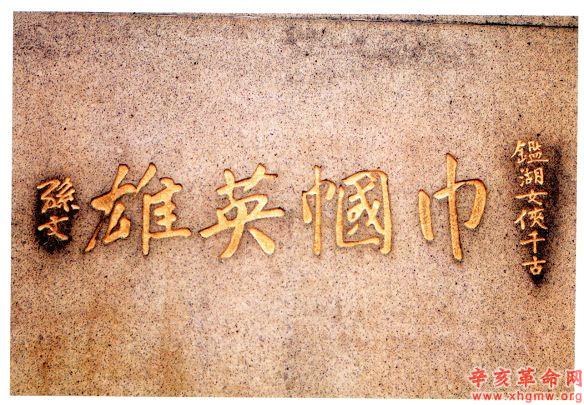 鑑湖女俠千古
巾幗英雄
孫文
辛亥革命网
www.xhgmw.org